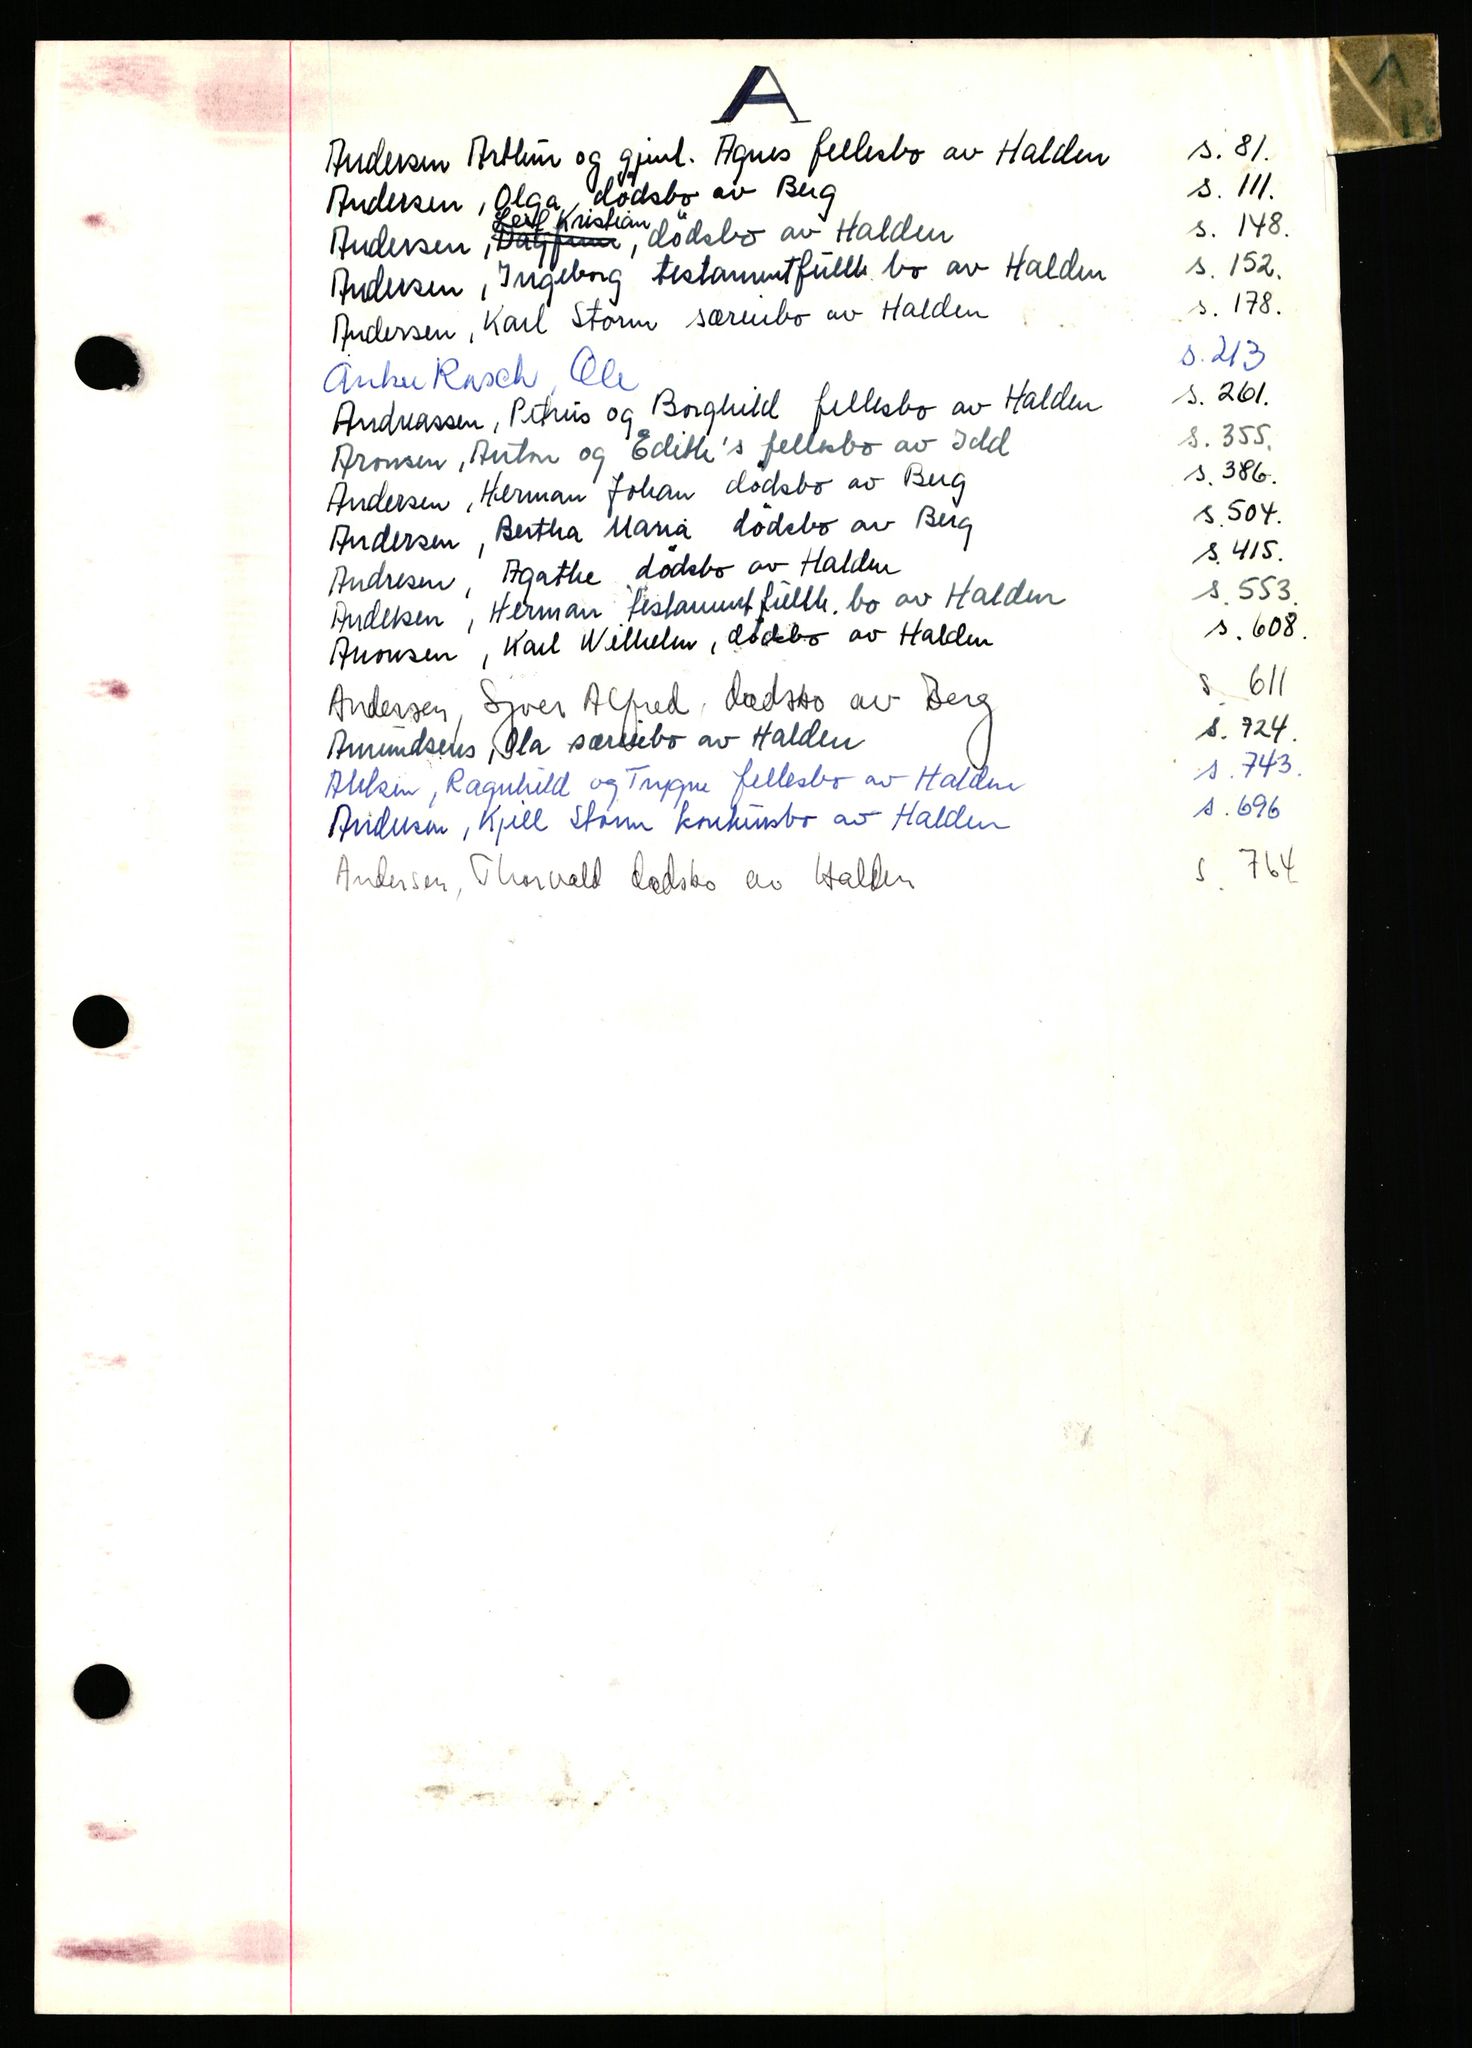 A
A
Andersen Arthur og gjenl. Agnes fellesbo av Halden s. 81.
Andersen, Olga, dödsbo av Berg s. 111.
Leif Kristian
Andersen, Dagfinn, dödsbo av Halden s. 148.
Andersen, Ingeborg testamentfullb. bo av Halden s. 152.
Andersen, Karl Storm særeiebo av Halden s. 178.
Anker Rasch, Ole s. 213
Andreassen, Petrus og Borghild fellesbo av Halden s. 261.
Aronsen, Anton og Edith's fellesbo av Idd s. 355.
Andersen, Herman Johan dödsbo av Berg s. 386.
Andersen, Bertha Maria dödsbo av Berg s. 504.
Andresen, Agathe dödsbo av Halden s. 415.
Andersen, Herman testamentfullb. bo av Halden s. 553.
Aronsen, Karl Wilhelm, dödsbo av Halden s. 608.
Andersen, Syver Alfred, dødsbo av Berg s. 611
Amundsens, Ola særeiebo av Halden s. 724.
Ragnhild og Trygve fellesbo av Halden s. 743.
Andersen, Kjell Storm konkursbo av Halden s. 696
Andersen, Thorvald dødsbo av Halden s. 764